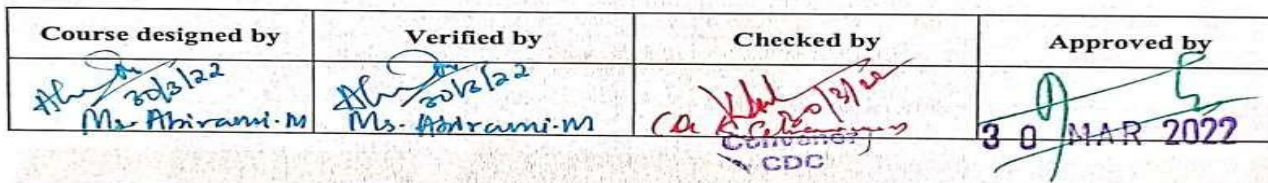 Course designed by Verified by Checked by Approved by
30/3/22 30/3/22 30/3/22
Ms. Abirami.M Ms. Abirami.M
Convener
CDC
30 MAR 2022